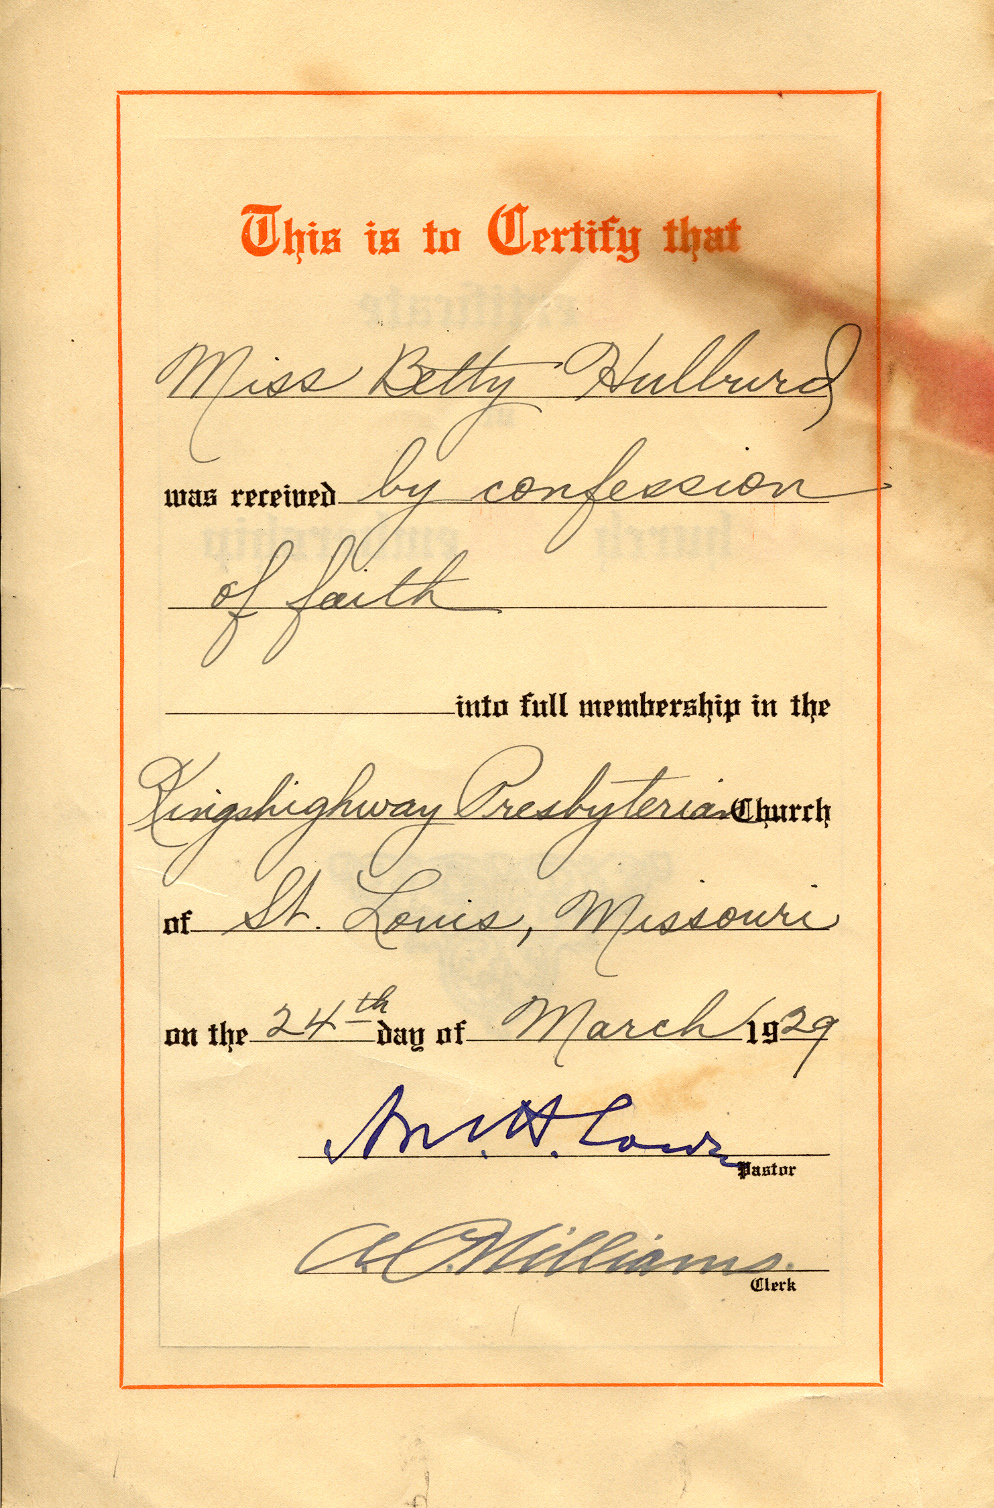 This is to Certify that
Miss Betty Hulburd
was received by confession
of faith
into full membership in the
Kingshighway Presbyterian Church
of St. Louis, Missouri
on the 24th day of March 1929
H.
Pastor
A. C. Williams.
Clerk